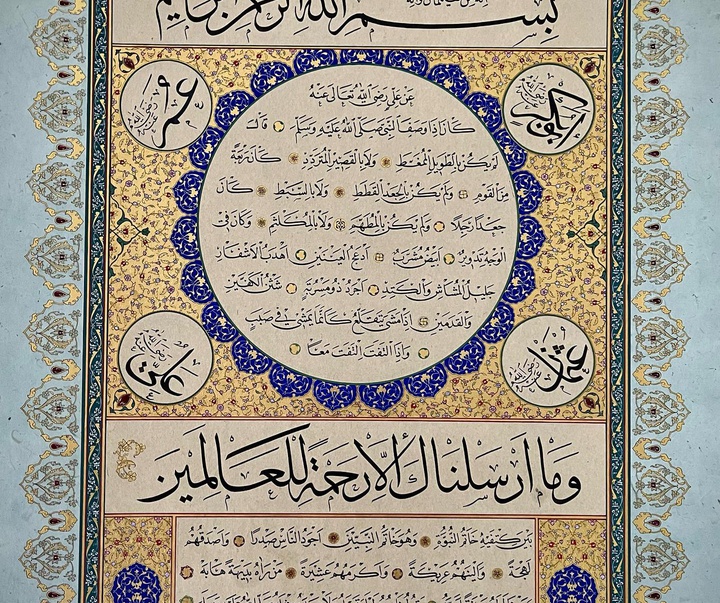 بِسْمِ اللهِ الرَّحْمٰنِ الرَّحِيمِ
ابو بكر رضي الله عنه
عمر رضي الله عنه
عَنْ عَلِيٍّ رَضِيَ اللهُ تَعَالٰى عَنْهُ
كَانَ اِذَا وَصَفَ النَّبِيَّ صَلَّى اللهُ عَلَيْهِ وَسَلَّمَ قَالَ
لَمْ يَكُنْ بِالطَّوِيلِ الْمُمَّغِطِ وَلَا بِالْقَصِيرِ الْمُتَرَدِّدِ كَانَ رَبْعَةً
مِنَ الْقَوْمِ وَلَمْ يَكُنْ بِالْجَعْدِ الْقَطَطِ وَلَا بِالسَّبِطِ كَانَ
جَعْدًا رَجِلًا وَلَمْ يَكُنْ بِالْمُطَهَّمِ وَلَا بِالْمُكَلْثَمِ وَكَانَ فِي
الْوَجْهِ تَدْوِيرٌ اَبْيَضُ مُشْرَبٌ اَدْعَجُ الْعَيْنَيْنِ اَهْدَبُ الْاَشْفَارِ
جَلِيلُ الْمُشَاشِ وَالْكَتَدِ اَجْرَدُ ذُو مَسْرُبَةٍ شَثْنُ الْكَفَّيْنِ
وَالْقَدَمَيْنِ اِذَا مَشٰى يَتَقَلَّعُ كَاَنَّمَا يَمْشِي فِي صَبَبٍ
وَاِذَا الْتَفَتَ الْتَفَتَ مَعًا
عثمان رضي الله عنه
علي رضي الله عنه
وَمَا اَرْسَلْنَاكَ اِلَّا رَحْمَةً لِلْعَالَمِينَ
بَيْنَ كَتِفَيْهِ خَاتَمُ النُّبُوَّةِ وَهُوَ خَاتَمُ النَّبِيِّينَ اَجْوَدُ النَّاسِ صَدْرًا وَاَصْدَقُهُمْ
لَهْجَةً وَاَلْيَنُهُمْ عَرِيكَةً وَاَكْرَمُهُمْ عَشِيرَةً مَنْ رَاٰهُ بَدِيهَةً هَابَهُ